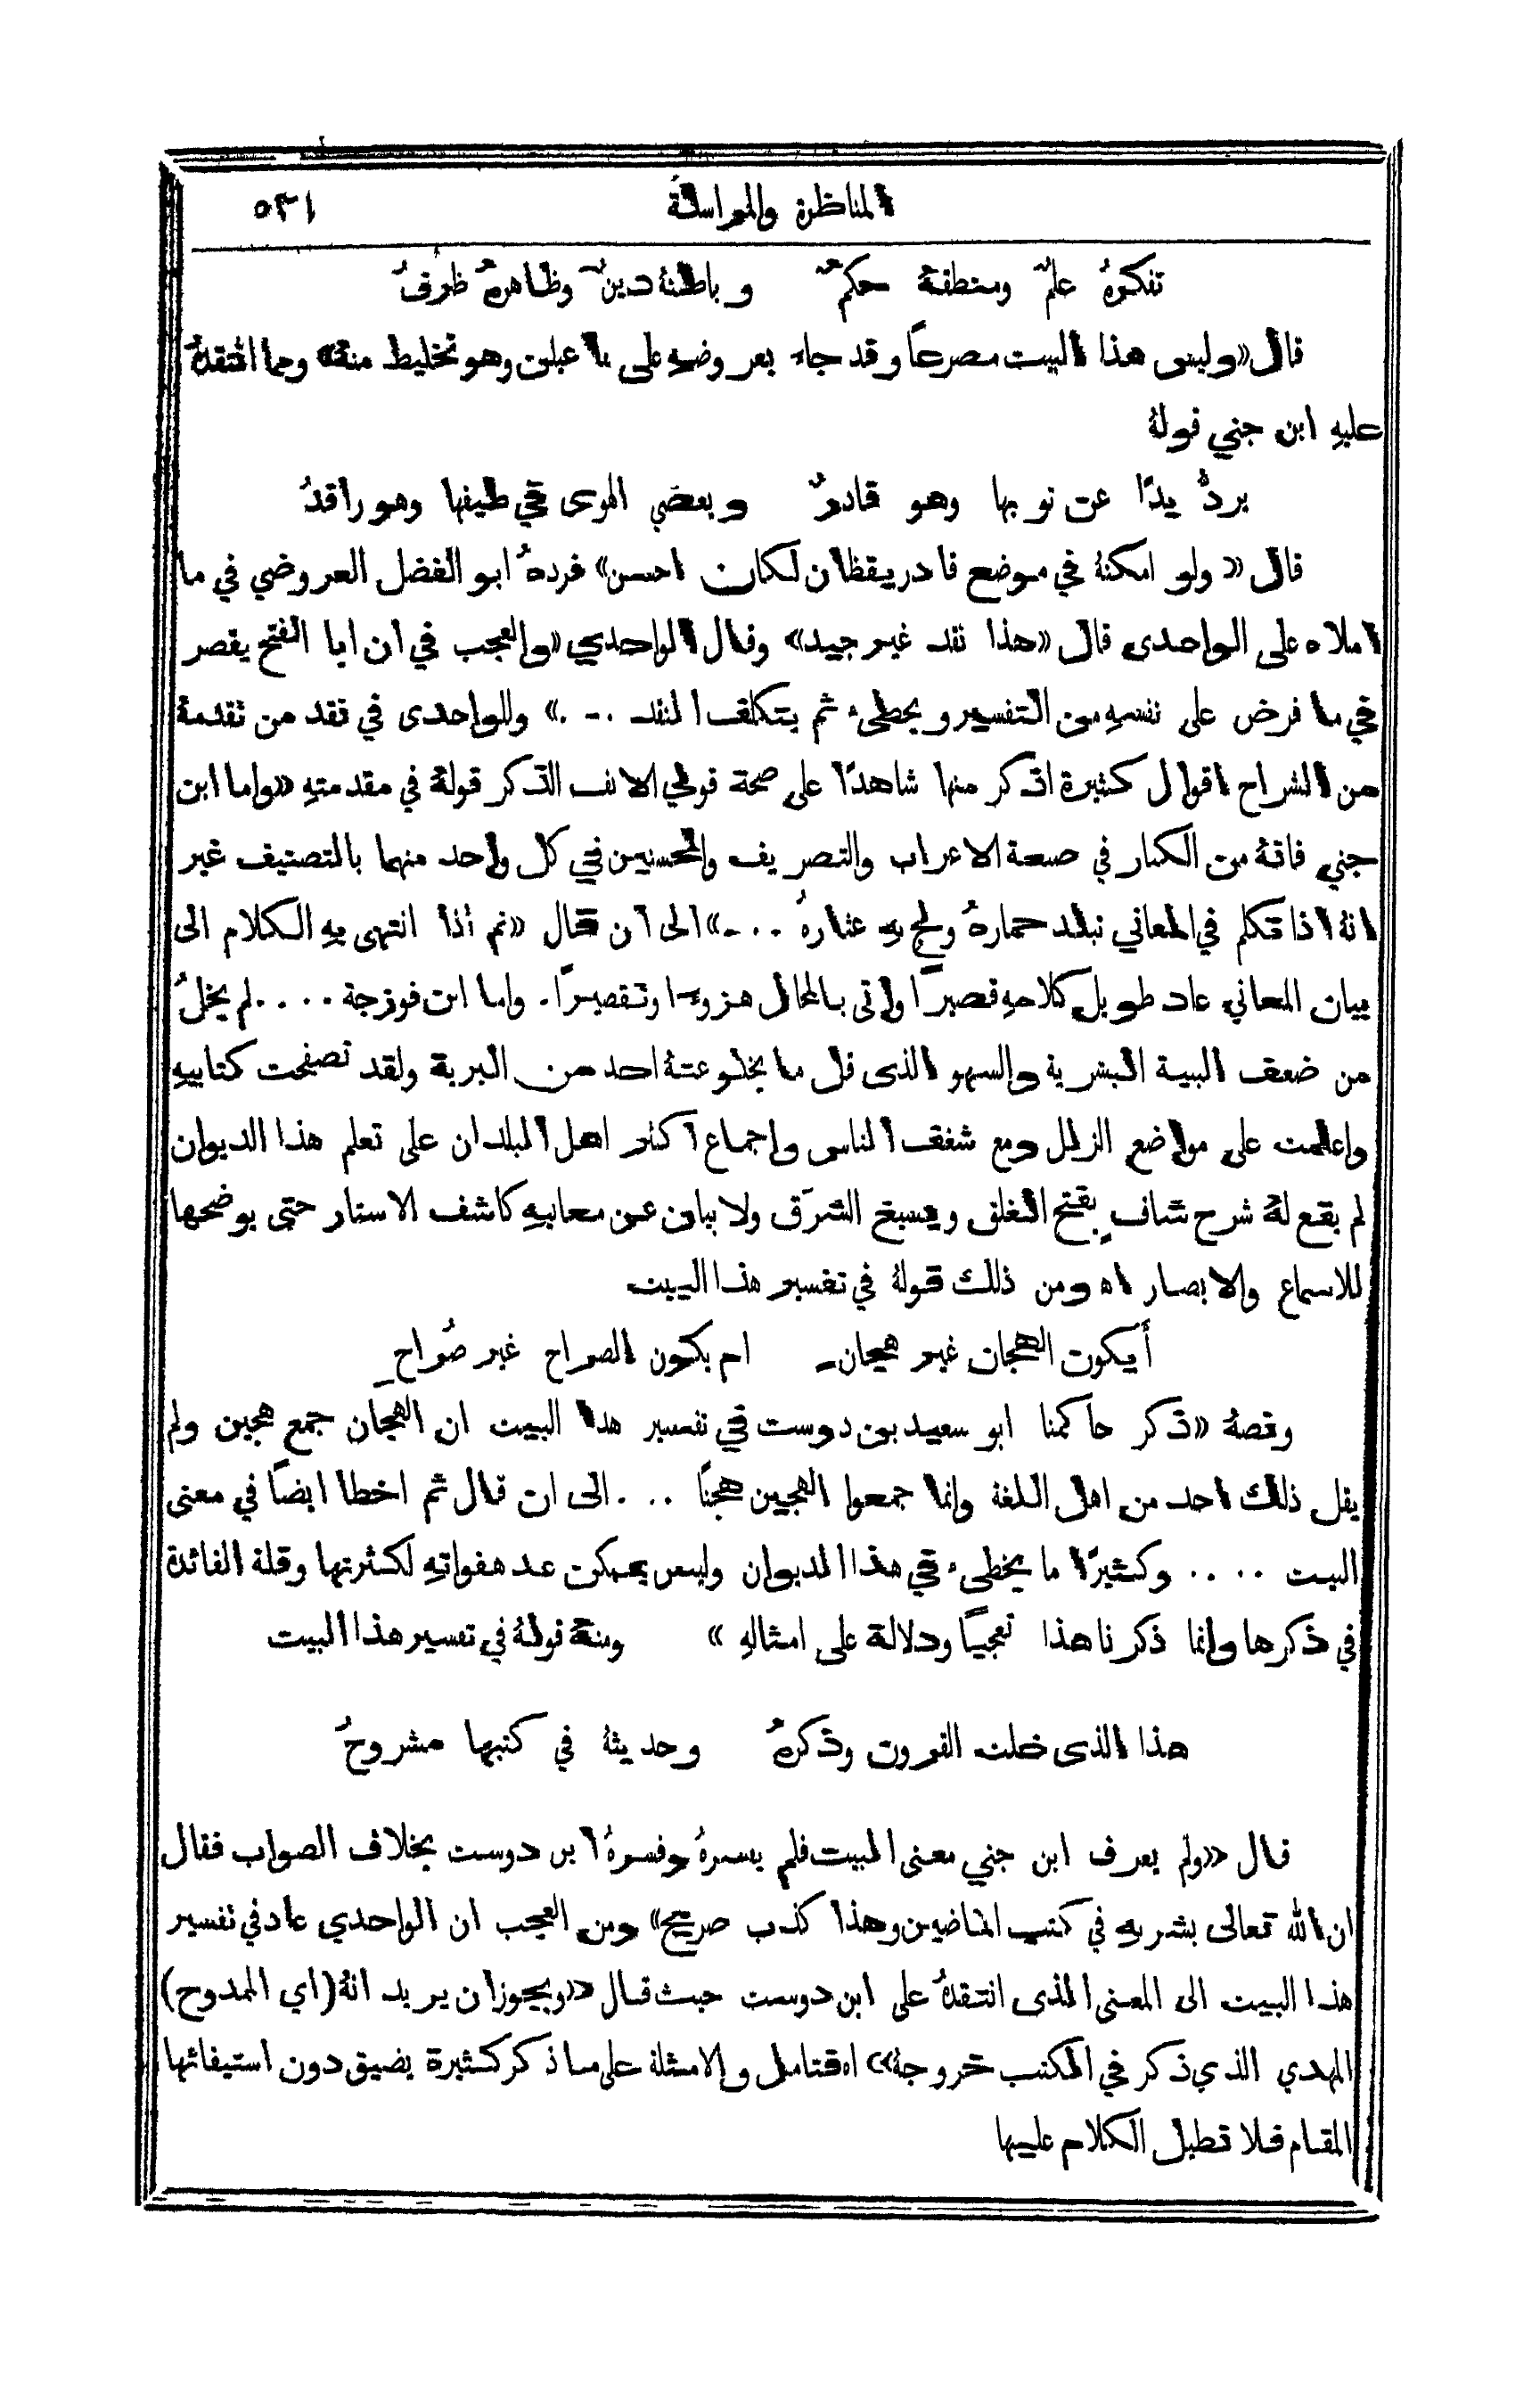 المناظرة والمراسلة ٥٣١
تفكرهُ علمٌ ومنطقهُ حكمٌ وباطنهُ دينٌ وظاهرهُ ظرفُ
قال «وليس هذا البيت مصرعاً وقد جاء بعروضهِ على مفاعيلن وهو تخليط منهُ» ومما انتقدهُ
عليهِ ابن جني قولهُ
يردُّ يدًا عن ثوبها وهو قادرٌ ويعصي الهوى في طيفها وهو راقدُ
قال «ولو امكنهُ في موضع قادر يقظان لكان احسن» فردهُ ابو الفضل العروضي في ما
املاه على الواحدي قال «هذا نقد غير جيد» وقال الواحدي «والعجب في ان ابا الفتح يقصر
في ما فرض على نفسهِ من التفسير ويخطىء ثم يتكلف النقد ...» وللواحدي في نقد من تقدمهُ
من الشراح اقوال كثيرة اذكر منها شاهدًا على صحة قولي الانف الذكر قولهُ في مقدمتهِ «واما ابن
جني فانهُ من الكبار في صنعة الاعراب والتصريف والمحسنين في كل واحد منهما بالتصنيف غير
انهُ اذا تكلم في المعاني تبلد حمارهُ ولج بهِ عثارهُ ...» الى ان قال «ثم اذا انتهى بهِ الكلام الى
بيان المعاني عاد طويل كلامهِ قصيرًا واتى بالمحال هزءًا وتقصيرًا. واما ابن فورجة .... لم يخلُ
من ضعف البنية البشرية والسهو الذي قل ما يخلو عنهُ احد من البرية ولقد تصفحت كتابيهِ
واعلمت على مواضع الزلل ومع شغف الناس واجماع اكثر اهل البلدان على تعلم هذا الديوان
لم يقع لهُ شرح شافٍ يفتح الغلق ويسيغ الشرَق ولا بيان عن معانيهِ كاشف الاستار حتى يوضحها
للاسماع والابصار اه ومن ذلك قولهُ في تفسير هذا البيت
أيكون الهجان غير هجانٍ ام يكون الصراح غير صُراحِ
ونصهُ «ذكر حاكمنا ابو سعيد بن دوست في تفسير هذا البيت ان الهجان جمع هجين ولم
يقل ذلك احد من اهل اللغة وانما جمعوا الهجين هجنًا ... الى ان قال ثم اخطا ايضاً في معنى
البيت .... وكثيرًا ما يخطىء في هذا الديوان وليس يمكن عد هفواتهِ لكثرتها وقلة الفائدة
في ذكرها وانما ذكرنا هذا تعجيباً ودلالة على امثالهِ» ومنهُ قولهُ في تفسير هذا البيت
هذا الذي خلت القرون وذكرهُ وحديثهُ في كتبها مشروحُ
قال «ولم يعرف ابن جني معنى البيت فلم يفسرهُ وفسرهُ ابن دوست بخلاف الصواب فقال
ان الله تعالى بشر بهِ في كتب الماضين وهذا كذب صريح» ومن العجب ان الواحدي عاد في تفسير
هذا البيت الى المعنى الذي انتقدهُ على ابن دوست حيث قال «ويجوز ان يريد انهُ (اي الممدوح)
المهدي الذي ذكر في الكتب خروجهُ» اه فتامل والامثلة على ما ذكر كثيرة يضيق دون استيفائها
المقام فلا نطيل الكلام عليها